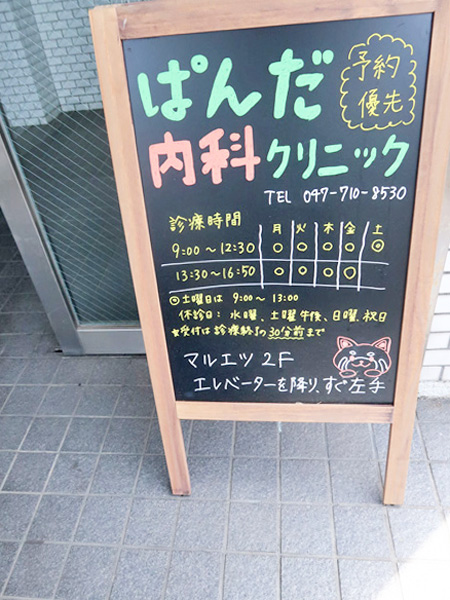 ぱんだ
予約
優先
内科クリニック
TEL 047-710-8530
診療時間 月 火 木 金 土
9:00～12:30 ○ ○ ○ ○ ◎
13:30～16:50 ○ ○ ○ ○
◎土曜日は 9:00～13:00
休診日: 水曜、土曜午後、日曜、祝日
★受付は診療終了の30分前まで
マルエツ 2F
エレベーターを降り、すぐ左手